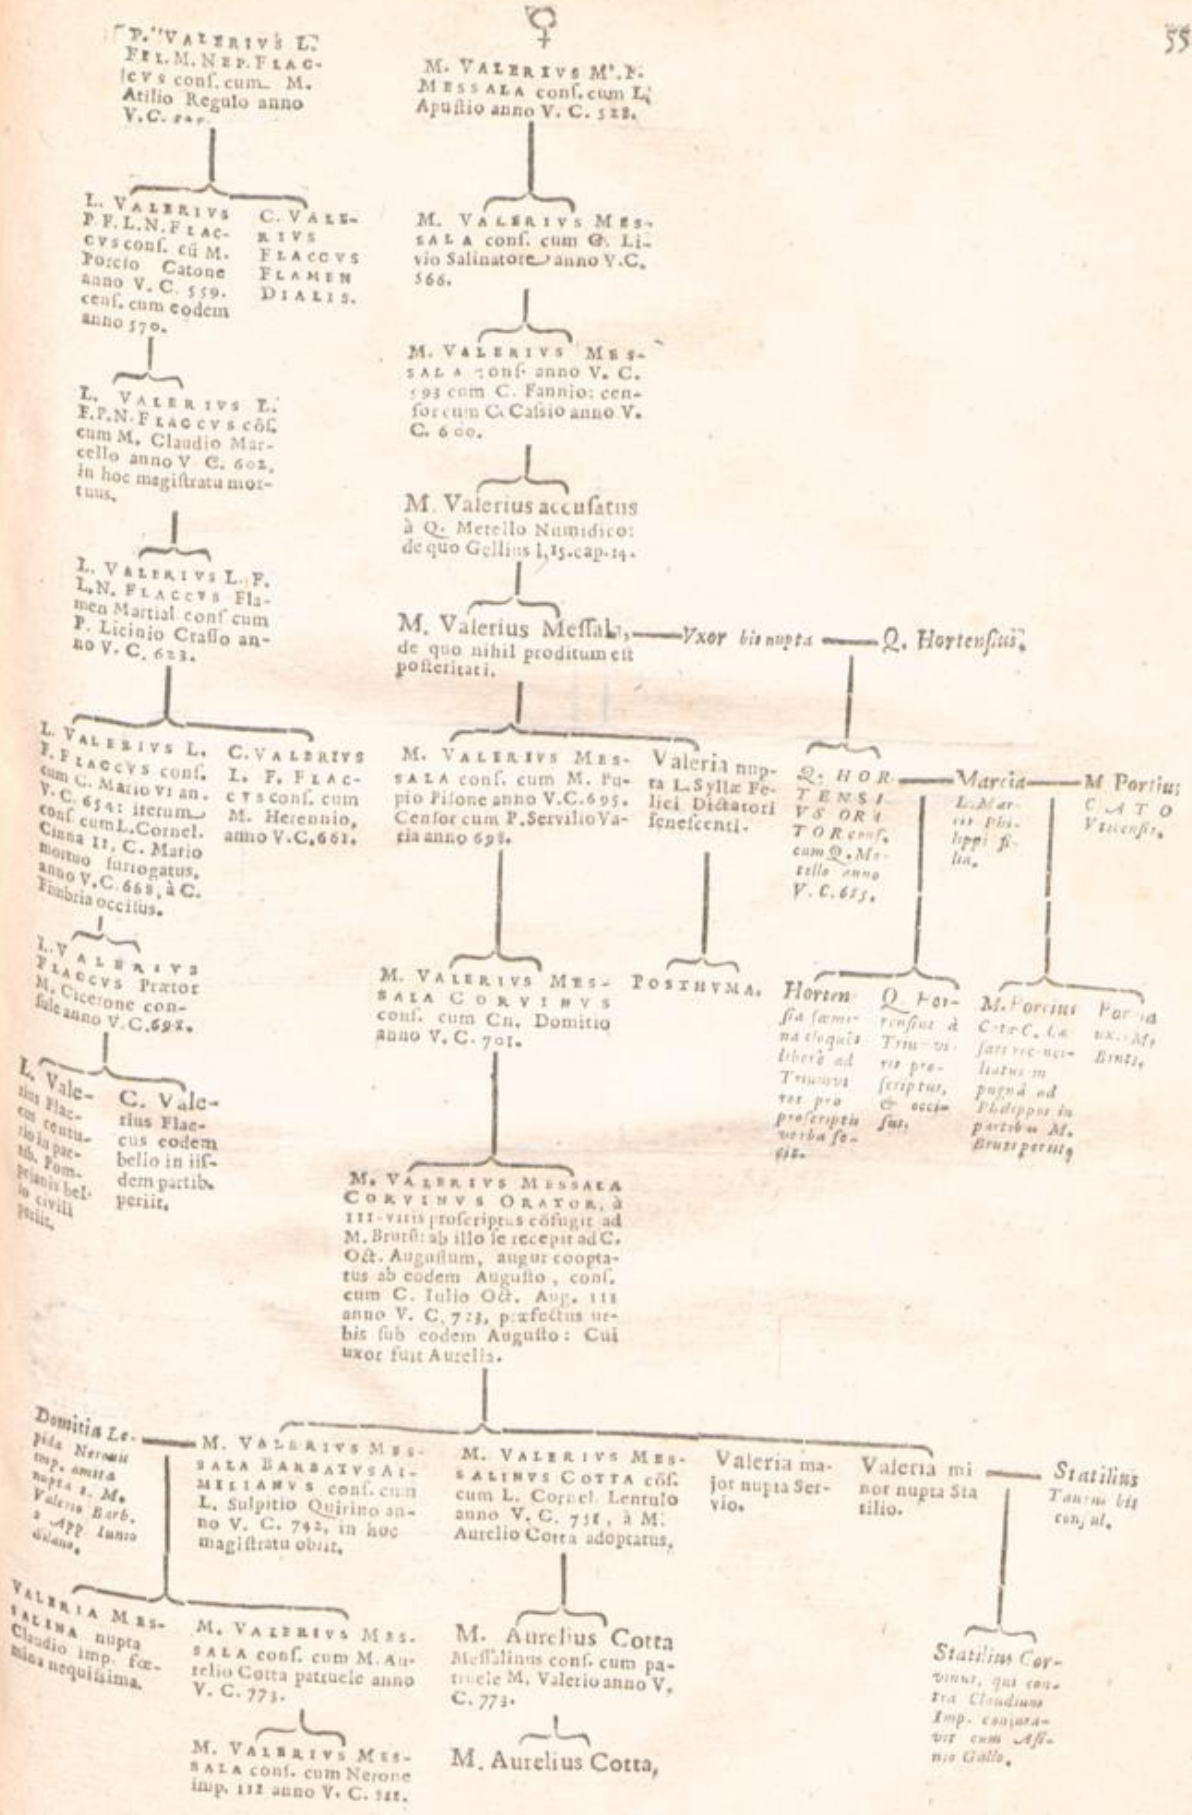 55
P. VALERIVS L.
FIL. M. NEP. FLAC-
cvs conſ. cum M.
Atilio Regulo anno
V. C.
L. VALERIVS
P. F. L. N. FLAC-
cvs conſ. cū M.
Porcio Catone
anno V. C. 559.
cenſ. cum eodem
anno 570.
C. VALE-
RIVS
FLACCVS
FLAMEN
DIALIS.
L. VALERIVS L.
F. P. N. FLACCVS cōſ.
cum M. Claudio Mar-
cello anno V. C. 602,
in hoc magiſtratu mor-
tuus.
L. VALERIVS L. F.
L. N. FLACCVS Fla-
men Martial. conſ cum
P. Licinio Craſſo an-
no V. C. 623.
L. VALERIVS L.
F. FLACCVS conſ.
cum C. Mario VI an.
V. C. 654: iterum
conſ. cum L. Cornel.
Cinna II, C. Mario
mortuo ſurrogatus,
anno V. C. 668, à C.
Fimbria occiſus.
C. VALERIVS
L. F. FLAC-
CVS conſ. cum
M. Herennio,
anno V. C. 661.
L. VALERIVS
FLACCVS Prætor
M. Cicerone con-
ſule anno V. C. 692.
L. Vale-
rius Flac-
cus centu-
rio in par-
tib. Pom-
peianis bel-
lo civili
periit.
C. Vale-
rius Flac-
cus eodem
bello in iiſ-
dem partib.
periit.
M. VALERIVS M'. F.
MESSALA conſ. cum L.
Apuſtio anno V. C. 528.
M. VALERIVS MES-
SALA conſ. cum C. Li-
vio Salinatore anno V. C.
566.
M. VALERIVS MES-
SALA conſ. anno V. C.
593 cum C. Fannio: cen-
ſor cum C. Caſsio anno V.
C. 600.
M. Valerius accuſatus
à Q. Metello Numidico:
de quo Gellius l, 15. cap. 14.
M. Valerius Meſſala, Vxor bis nupta Q. Hortenſius.
de quo nihil proditum eſt
poſteritati.
M. VALERIVS MES-
SALA conſ. cum M. Pu-
pio Piſone anno V. C. 695.
Cenſor cum P. Servilio Va-
tia anno 698.
Valeria nup-
ta L. Syllæ Fe-
lici Dictatori
ſeneſcenti.
Q. HOR-
TENSI-
VS ORA
TOR conſ.
cum Q. Me-
tello anno
V. C. 685.
Marcia
L. Mar-
cii Phi-
lippi fi-
lia.
M Portius
CATO
Vticenſis.
M. VALERIVS MES-
SALA CORVINVS
conſ. cum Cn. Domitio
anno V. C. 701.
POSTHVMA.
Horten-
ſia fœmi-
na eloquẽs
liberè ad
Triumvi
ros pro
proſcriptis
verba fe-
cit.
Q Hor-
tenſius à
Triumvi-
ris pro-
ſcriptus,
& occi-
ſus.
M. Porcius
Cato C. Cæ
ſari reconci-
liatus in
pugnâ ad
Philippos in
partibus M.
Bruti periit,
Porcia
ux. M.
Bruti,
M. VALERIVS MESSALA
CORVINVS ORATOR, à
III-viris proſcriptus cōfugit ad
M. Brutū: ab illo ſe recepit ad C.
Oct. Auguſtum, augur coopta-
tus ab eodem Auguſto, conſ.
cum C. Iulio Oct. Aug. III
anno V. C. 723, præfectus ur-
bis ſub eodem Auguſto: Cui
uxor fuit Aurelia.
Domitia Le-
pida Neronis
imp. amita
nupta 1. M.
Valerio Barb.
2 App. Iunio
Silano.
M. VALERIVS MES-
SALA BARBATVS AE-
MILIANVS conſ. cum
L. Sulpitio Quirino an-
no V. C. 742, in hoc
magiſtratu obiit.
M. VALERIVS MES-
SALINVS COTTA cōſ.
cum L. Cornel. Lentulo
anno V. C. 751, à M.
Aurelio Cotta adoptatus.
Valeria ma-
jor nupta Ser-
vio.
Valeria mi
nor nupta Sta
tilio.
Statilius
Taurus bis
conſul.
VALERIA MES-
SALINA nupta
Claudio imp. fœ-
mina nequiſsima.
M. VALERIVS MES-
SALA conſ. cum M. Au-
relio Cotta patruele anno
V. C. 773.
M. Aurelius Cotta
Meſſalinus conſ. cum pa-
truele M. Valerio anno V.
C. 773.
Statilius Cor-
vinus, qui con-
tra Claudium
Imp. conjura-
vit cum Aſi-
nio Gallo.
M. VALERIVS MES-
SALA conſ. cum Nerone
imp. III anno V. C.
M. Aurelius Cotta,